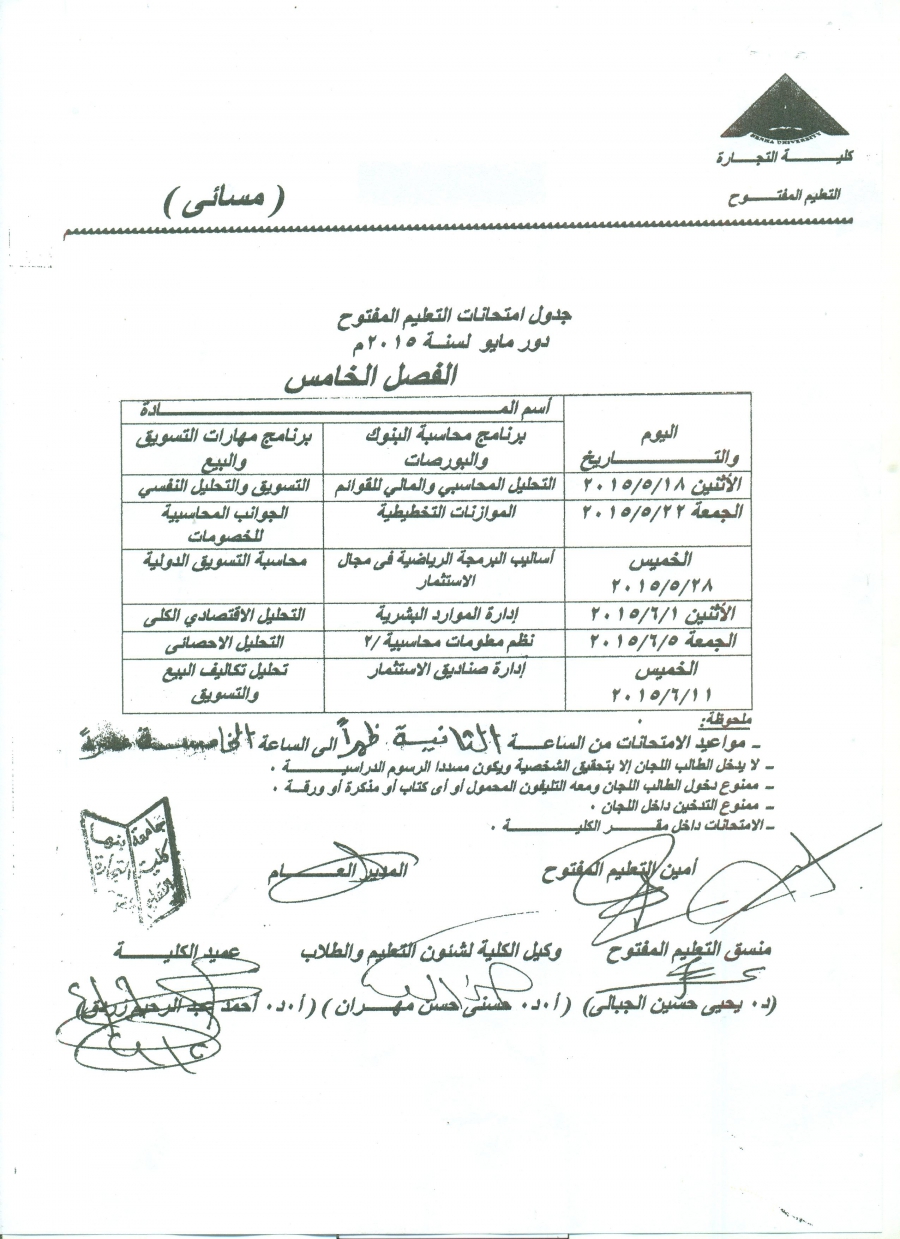 BENHA UNIVERSITY
كليـــــة التجـــارة
التعليم المفتـــوح
( مسائى )
جدول امتحانات التعليم المفتوح
دور مايو لسنة ٢٠١٥م
الفصل الخامس
اليوم والتـــــــاريخ
أسم المـــــــــــــــادة
برنامج محاسبة البنوك والبورصات
برنامج مهارات التسويق والبيع
الأثنين ٢٠١٥/٥/١٨
التحليل المحاسبي والمالي للقوائم
التسويق والتحليل النفسي
الجمعة ٢٠١٥/٥/٢٢
الموازنات التخطيطية
الجوانب المحاسبية للخصومات
الخميس ٢٠١٥/٥/٢٨
أساليب البرمجة الرياضية فى مجال الاستثمار
محاسبة التسويق الدولية
الأثنين ٢٠١٥/٦/١
إدارة الموارد البشرية
التحليل الاقتصادي الكلى
الجمعة ٢٠١٥/٦/٥
نظم معلومات محاسبية /٢
التحليل الاحصائى
الخميس ٢٠١٥/٦/١١
إدارة صناديق الاستثمار
تحليل تكاليف البيع والتسويق
ملحوظة:
ـ مواعيد الامتحانات من الساعـــة الثانية ظهراً الى الساعة الخامسة
ـ لا يدخل الطالب اللجان إلا بتحقيق الشخصية ويكون مسددا الرسوم الدراسيـــــة ٠
ـ ممنوع دخول الطالب اللجان ومعه التليفون المحمول أو أى كتاب أو مذكرة أو ورقة ٠
ـ ممنوع التدخين داخل اللجان ٠
ـ الامتحانات داخل مقـــر الكليـــــة ٠
جامعة بنها
كلية التجارة
أمين التعليم المفتوح
المدير العـــــام
منسق التعليم المفتوح
وكيل الكلية لشئون التعليم والطلاب
عميد الكليـــــة
(د٠ يحيى حسين الجبالى)
( أ٠د٠ حسنى حسن مهـــران )
( أ٠د٠ أحمد عبد الرحيم زردق)